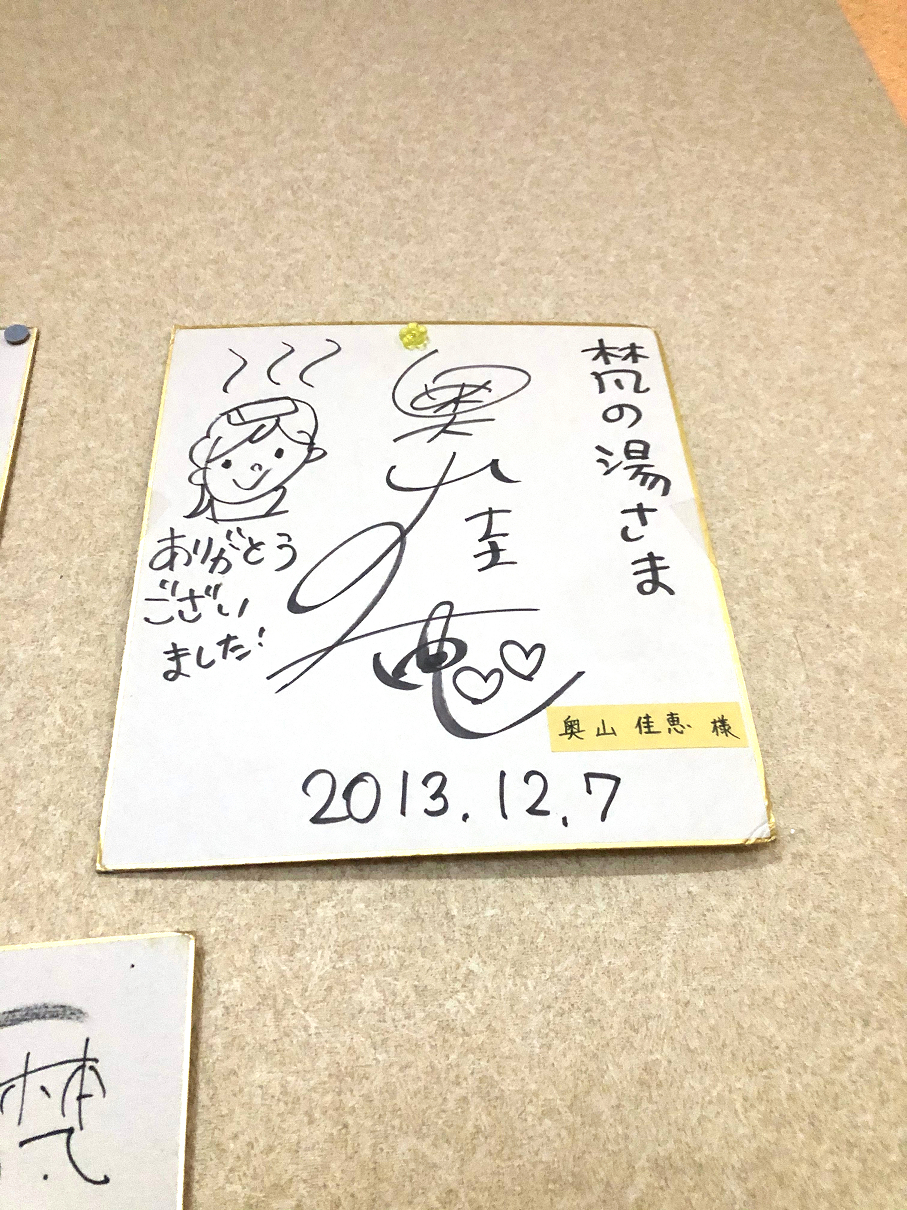 梵の湯さま
奥山佳恵
ありがとう
ござい
ました!
奥山 佳恵 様
2013.12.7
梵